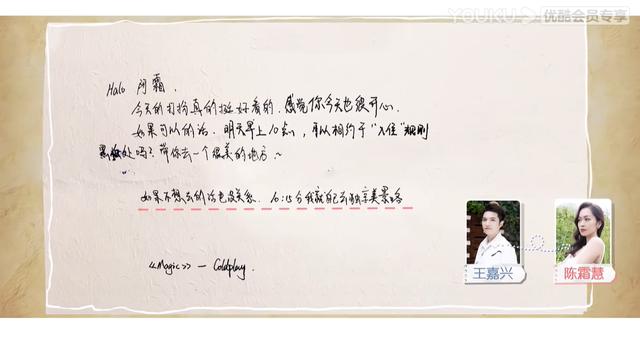 YOUKU 优酷会员专享
Halo 阿霜.
今天的打扮真的挺好看的. 感觉你今天也很开心.
如果可以的话. 明天早上10点, 可以相约于“入住”规则
处吗? 带你去一个很美的地方~
如果不想去的话也没关系. 10:15分我就自己去独享美景咯
《Magic》— Coldplay.
王嘉兴
陈霜慧